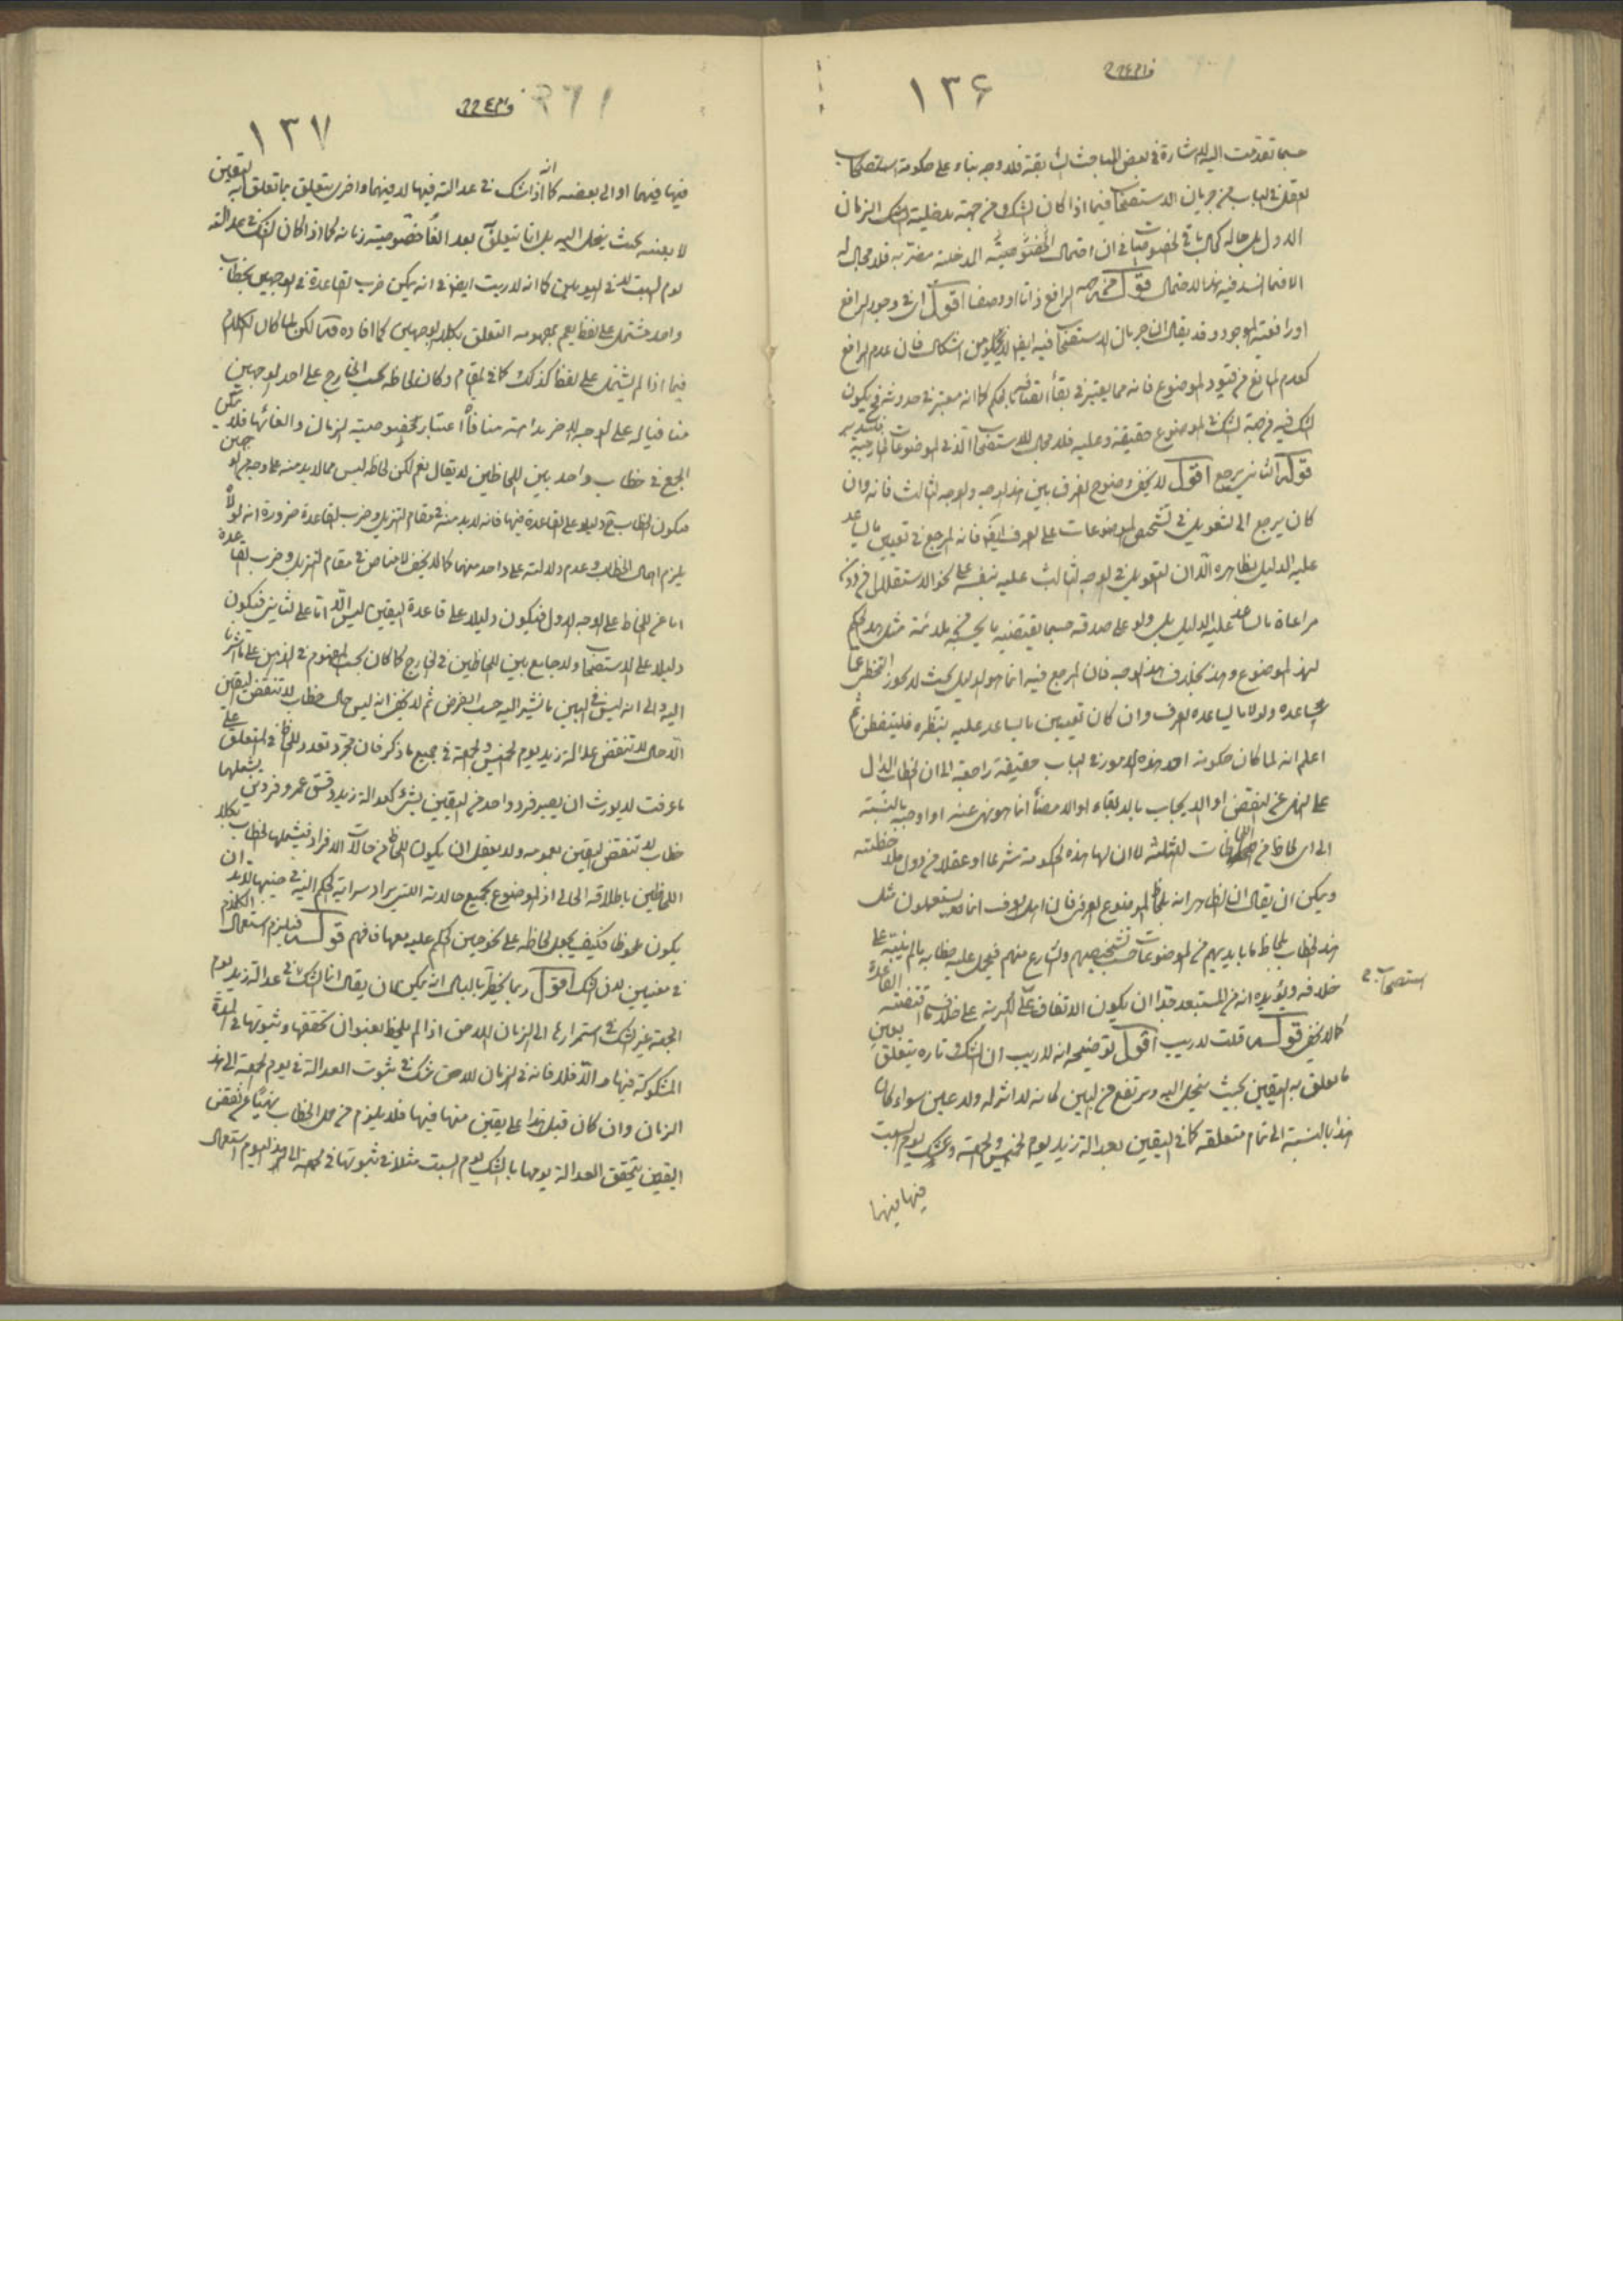 ١٣۶
حسبما تقدمت اليه الاشارة فى بعض المباحث السابقة فلا وجه بناء على حكومة استصحاب
العقل فى الباب من جريان الاستصحاب فيما اذا كان الشك من جهة مدخلية الزمان
الاول بل حاله كحال باقى الخصوصيات فى ان احتمال الخصوصية المدخلية مضر به فلا مجال له
الا فيما انسد فيه هذا الاحتمال قوله من جهة الرافع ذاتا او وصفا اقول اى فى وجود الرافع
او رافعية الموجود وقد يقال ان جريان الاستصحاب فيه ايضا لا يخلو من اشكال فان عدم الرافع
كعدم المانع من قيود الموضوع فانه مما يعتبر فى بقاء الحكم كما انه معتبر فى حدوثه فيكون
الشك فيه من جهة الشك فى الموضوع حقيقة وعليه فلا مجال للاستصحاب الا فى الموضوعات الخارجية فتدبر
قوله الثانى يرجع اقول لا يخفى وضوح الفرق بين هذا الوجه والوجه الثالث فانه وان
كان يرجع الى التعويل فى تشخيص الموضوعات على العرف ايضا فانه المرجع فى تعيين ما يساعد
عليه الدليل بظاهره الا ان التعويل فى الوجه الثالث عليه بنفسه على نحو الاستقلال من دون
مراعاة ما يساعد عليه الدليل بل ولو على صدقه حسبما يقتضيه ما يحسبه ملائمة مثل هذا الحكم
لهذا الموضوع وهذا بخلاف هذا الوجه فان المرجع فيه انما هو الدليل بحيث لا يجوز التخطى عما
يساعده ولو لا ما يساعده العرف وان كان تعيين ما يساعد عليه بنظره فليتفطن ثم
اعلم انه لما كان حكومة احد هذه الامور فى الباب حقيقة راجعة الى ان الخطاب الدال
على النهى عن النقض او الايجاب بالابقاء او الامضاء انما هو نهى عنه او اوجبه بالنسبة
الى اى لحاظ من اللحاظات الثلثة لا ان لها هذه الحكومة شرعا او عقلا من دون ملاحظته
ويمكن ان يقال ان الظاهر انه بلحاظ الموضوع العرفى فان اهل العرف انما يستعملون مثل
هذا الخطاب بلحاظ ما بايديهم من الموضوعات حسب تشخيصهم والشارع منهم فيحمل عليه خطابه ما لم ينبه على
خلافه ويؤيده انه من المستبعد جدا ان يكون الاتفاق على الكرية على خلاف ما تقتضيه القاعدة
استصحاب
كما لا يخفى قوله قلت لا ريب اقول توضيحه انه لا ريب ان الشك تارة يتعلق بعين
ما تعلق به اليقين بحيث ينحل اليه ويرتفع من البين كانه لا اثر له ولا عين سواء كان
هذا بالنسبة الى تمام متعلقه كما فى اليقين بعدالة زيد يوم الخميس والجمعة وشك يوم السبت
فيها فيهما
١٣٧
فيها فيهما او الى بعضه كما انه اذا شك فى عدالته فيها لا فيهما واخرى يتعلق بما تعلق به اليقين
لا بعينه بحيث ينحل اليه بل انما يتعلق به بعد الغاء خصوصية زمانه كما اذا كان الشك فى عدالته
يوم السبت لا فى اليومين كما انه لا ريب ايضا فى انه يمكن ضرب القاعدة فى الوجهين بخطاب
واحد مشتمل على لفظ يعم بمفهومه التعلق بكلا الوجهين كما افاده قده لكن لما كان الكلام
فيما اذا لم يشتمل على لفظ كذلك كما فى المقام وكان لحاظه بحسب الخارج على احد الوجهين
منافيا له على الوجه الاخر بداهة منافاة اعتبار خصوصية الزمان والغائها فلا يمكن
الجمع فى خطاب واحد بين اللحاظين لا يقال نعم لكن لحاظه ليس مما لابد منه على وجه من الوجهين
فيكون الخطاب ح دليلا على القاعدة فيهما فانه لابد منه فى مقام التنزيل وضرب القاعدة ضرورة انه لولاه
يلزم اهمال الخطاب وعدم دلالته على واحد منهما كما لا يخفى لا مناص فى مقام التنزيل وضرب القاعدة
اما من اللحاظ على الوجه الاول فيكون دليلا على قاعدة اليقين ليس الا واما على الثانى فيكون
دليلا على الاستصحاب ولا جامع بين اللحاظين فى الخارج كما كان بحسب المفهوم فى الذهن على ما اشرنا
اليه والى انه ليس فى البين ما يشير اليه حسب الفرض ثم لا يخفى انه ليس حال خطاب لا تنقض اليقين
الا حال لا تنقض عدالة زيد يوم الخميس والجمعة فى جميع ما ذكر فان مجرد تعدد اللحاظ فى المتعلق على
ما عرفت لا يورث ان يصير فرد واحد من اليقين بشىء كعدالة زيد وفسق عمرو فردين يشملهما
خطاب لا تنقض اليقين بعمومه ولا يعقل ان يكون اللحاظ من حالات الافراد فيشملها الخطاب بكلا
اللحاظين باطلاقه الحالى اذ الموضوع بجميع حالاته التى يراد سراية الحكم اليه فى ضمنها لابد ان
يكون ملحوظا فكيف يجعل لحاظه على نحوين الحكم عليه معها فافهم قوله فيلزم استعمال الكلام
فى معنيين لان الشك اقول ربما يخطر بالبال انه يمكن ان يقال انما الشك فى عدالة زيد يوم
الجمعة غير الشك فى استمرارها الى الزمان اللاحق اذا لم يلحظ بعنوان تحققها وثبوتها فى المدة
المشكوكة فيها والا فلا فانه فى الزمان اللاحق شك فى ثبوت العدالة فى يوم الجمعة الى هذا
الزمان وان كان قبل هذا على يقين منها فيها فلا يلزم من حمل الخطاب نهيا عن نقض
اليقين بتحقق العدالة يومها بالشك يوم السبت مثلا فى ثبوتها فى الجمعة الى هذا اليوم استعمال